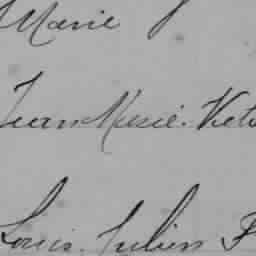 Marie
Jean Marie. Vict
Louis. Julien F